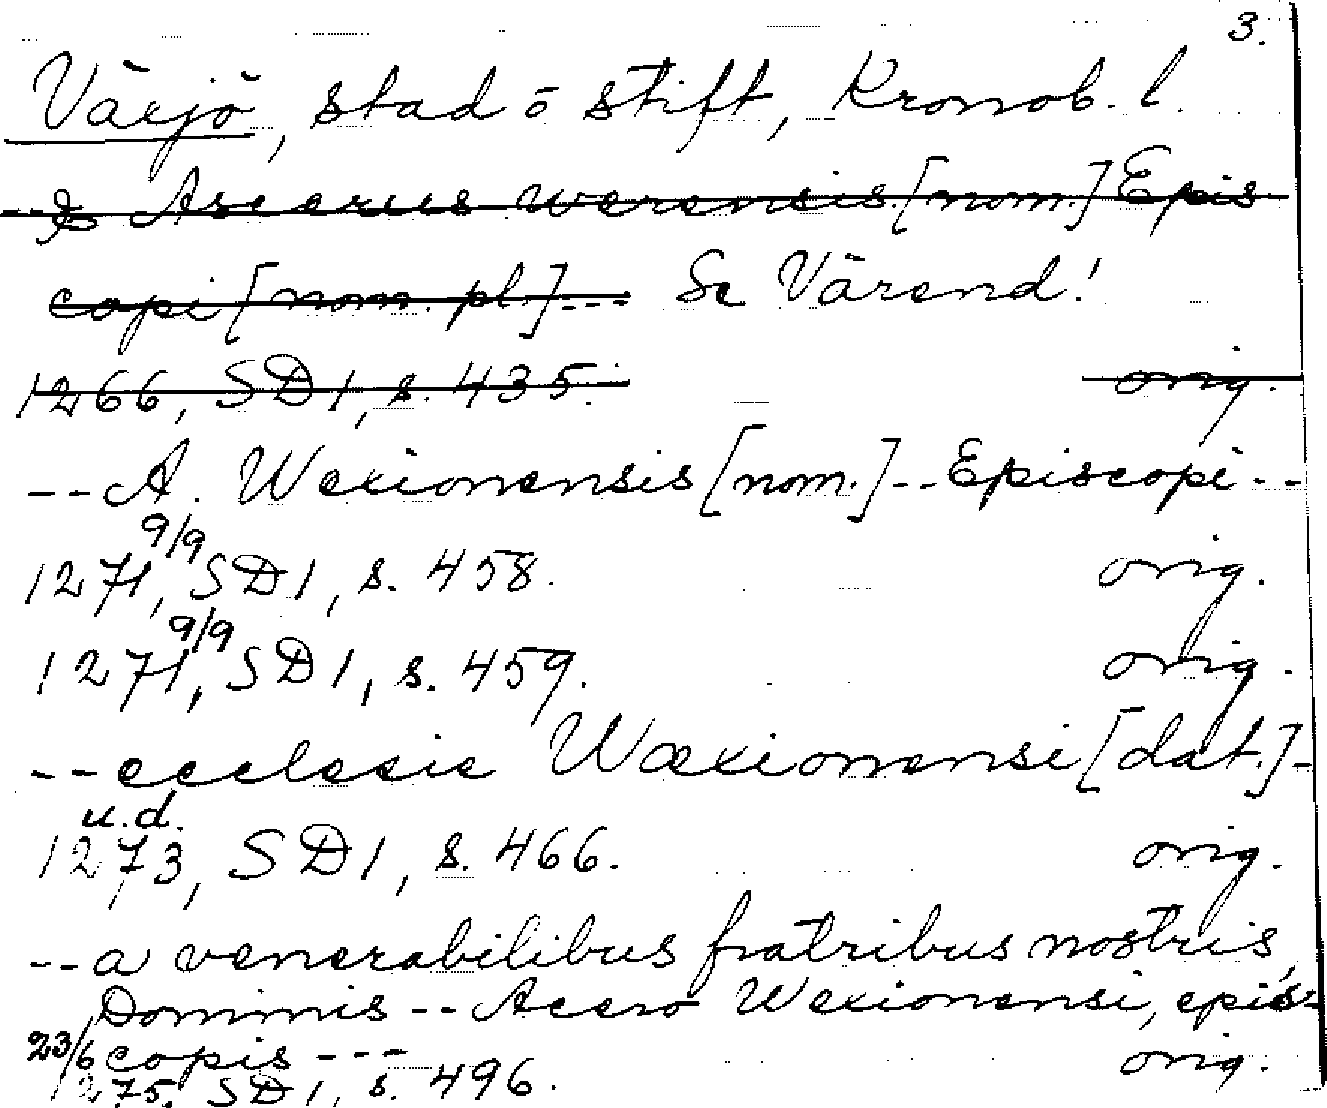 3.
Växjö, stad ö stift, Kronob. l.
--& Ascerus werensis [nom.] Epis
copi [nom. pl.]--- Se Värend!
1266, SD 1, s. 435. orig.
--A. Wexionensis [nom.]--Episcopi--
9/9
1271, SD 1, s. 458. orig.
9/9
1271, SD 1, s. 459. orig.
--ecclesie Wæxionensi [dat.]-
u.d.
1273, SD 1, s. 466. orig.
--a venerabilibus fratribus nostris,
Dominis--Acero Wexionensi, epis-
23/6 copis --- orig.
1275, SD 1, s. 496.